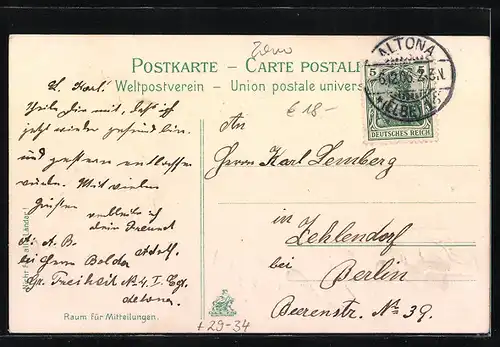 POSTKARTE – CARTE POSTALE
Weltpostverein – Union postale univers
ALTONA
6.12.06
(ELBE)
5 5
DEUTSCHES REICH
€ 18-
L. Karl!
Teile Dir mit, daß ich
jetzt wieder gesund bin
und gestern entlassen
wurde. Mit vielen
Grüßen
verbleibe ich
dein Freund
Adolf.
A. B.
bei Herrn Bolda
Gr. Freiheit No. 4, I. Etg.
Altona.
An
Herrn Karl Lemberg
in
Zehlendorf
bei
Berlin
Beerenstr. No 39.
Raum für Mitteilungen.
+29-34